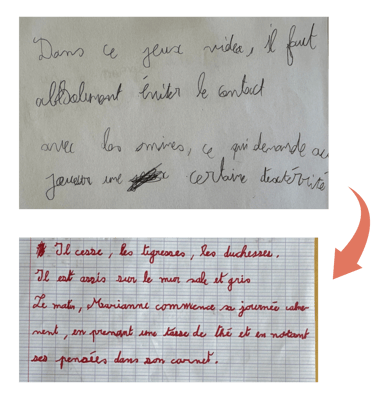 Dans ce jeux video, il faut
éviter le contact
avec les mines, ce qui demande au
joueur une certaine dextérité
Il cesse, les tigresses, les duchesses.
Il est assis sur le mur sale et gris
Le matin, Marianne commence sa journée calme-
ment, en prenant une tasse de thé et en notant
ses pensées dans son carnet.